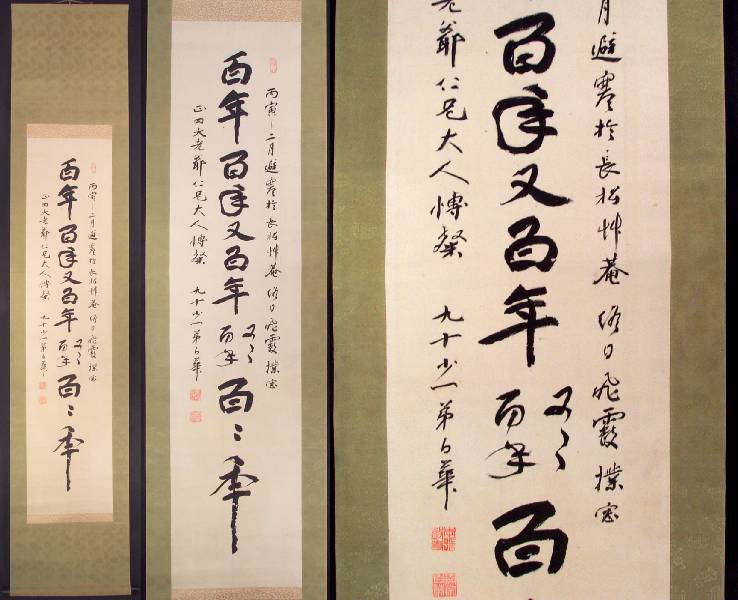 丙寅一二月避寒於長松艸菴 終日飛霰撲窓
百年百年又百年
又々
百年
百々年
大老爺仁兄大人博粲 九十少一弟白華